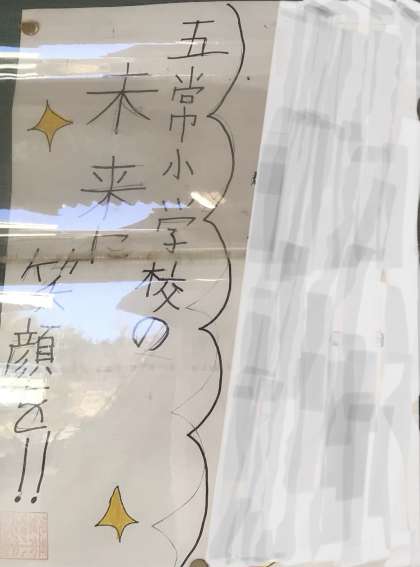 五常小学校の
未来に
笑顔を!!